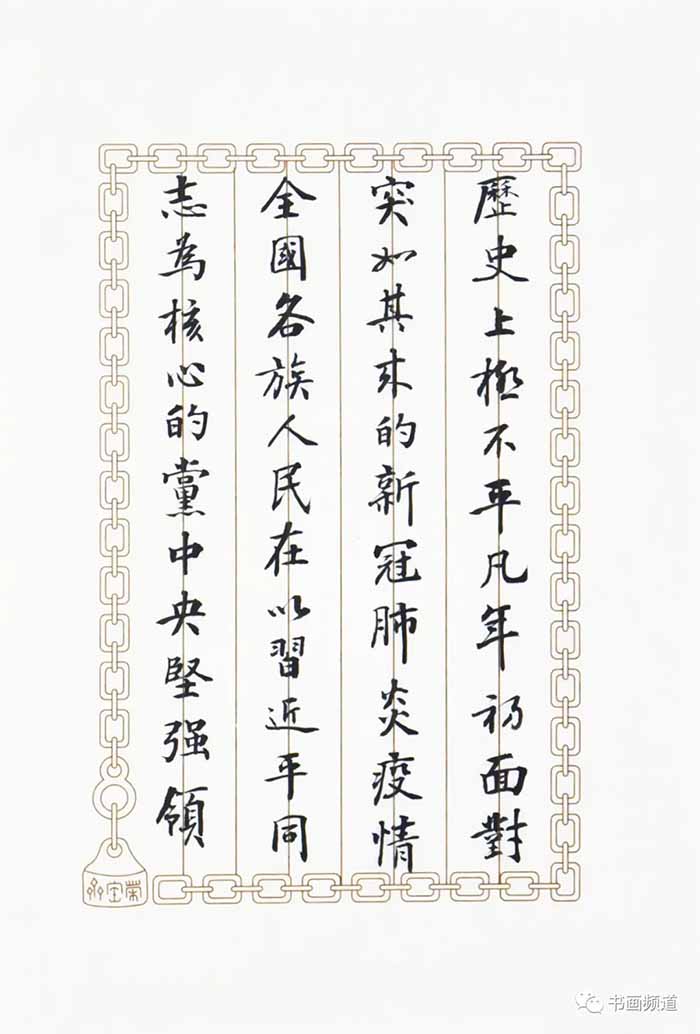 歷史上極不平凡年初面對
突如其来的新冠肺炎疫情
全國各族人民在以習近平同
志為核心的黨中央堅强領
榮宝齋
书画频道